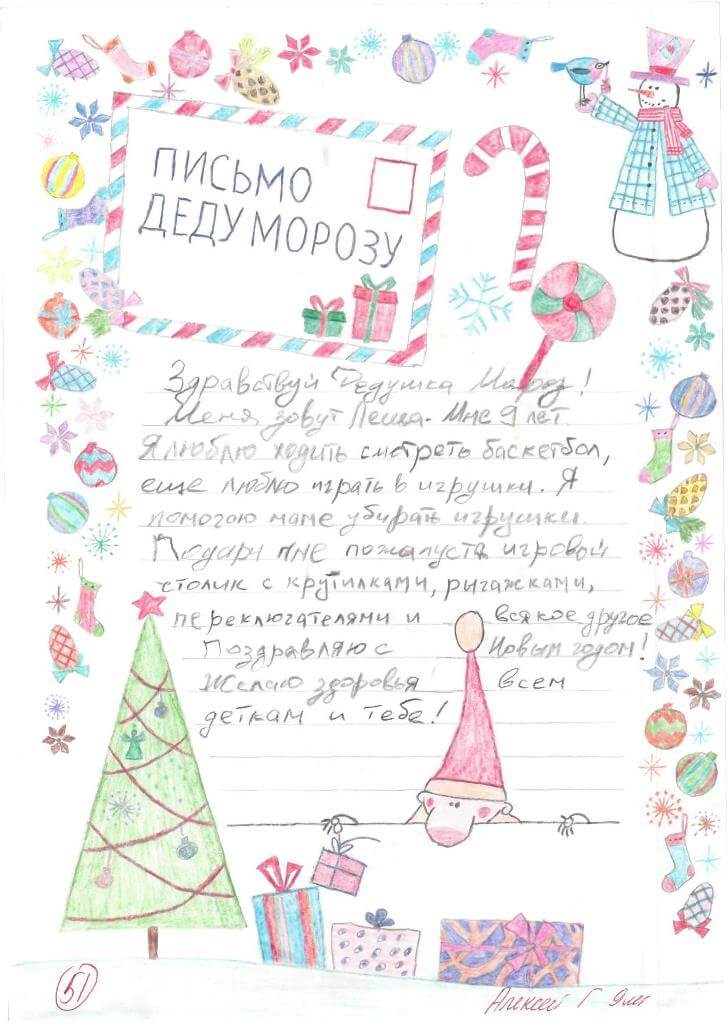 ПИСЬМО
ДЕДУ МОРОЗУ
Здравствуй Дедушка Мороз!
Меня зовут Леша. Мне 9 лет.
Я люблю ходить смотреть баскетбол,
еще люблю играть в игрушки. Я
помогаю маме убирать игрушки.
Подари мне пожалуста игровой
столик с крутилками, рычажками,
переключателями и всякое другое
Поздравляю с Новым годом!
Желаю здоровья всем
деткам и тебе!
51
Алексей Г 9 лет